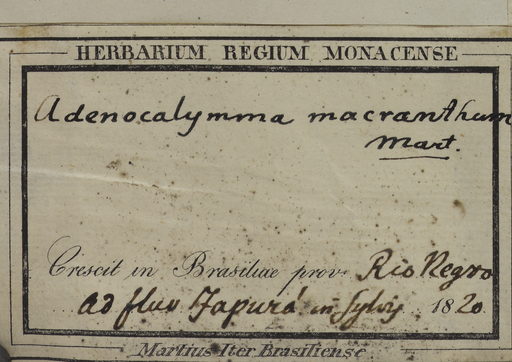 HERBARIUM REGIUM MONACENSE
Adenocalymma macranthum
Mart.
Crescit in Brasiliae prov. Rio Negro
ad fluv Japurá in Sylvis. 1820.
Martius Iter Brasiliense